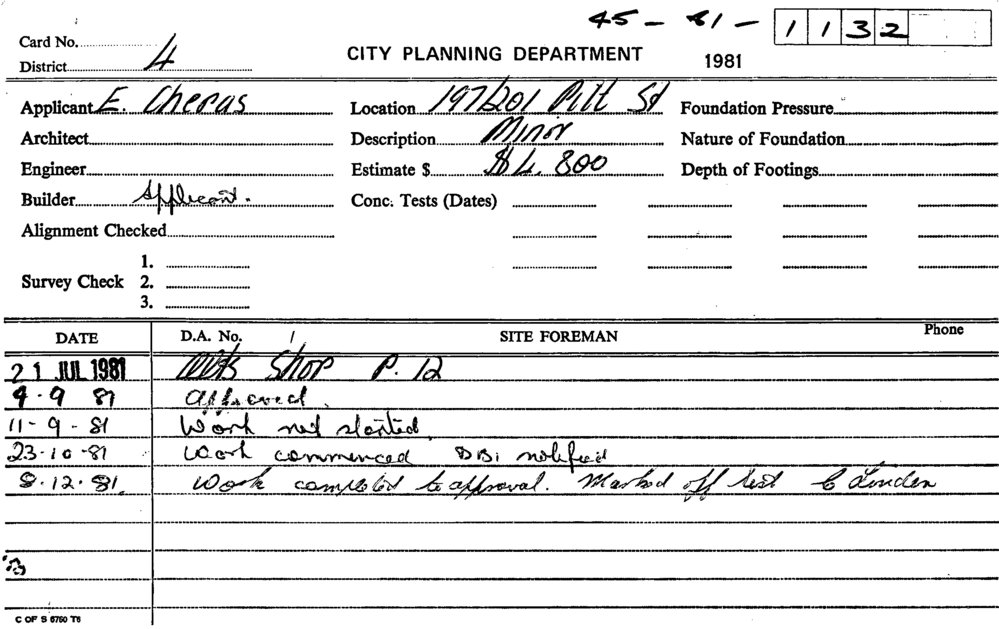 45 - 81 - 1132
Card No.
District 4
CITY PLANNING DEPARTMENT 1981
Applicant E. Cheras Location 197/201 Pitt St Foundation Pressure
Architect Description Minor Nature of Foundation
Engineer Estimate $ $4.800 Depth of Footings
Builder Applicant. Conc. Tests (Dates)
Alignment Checked
1.
Survey Check 2.
3.
DATE D.A. No. SITE FOREMAN Phone
21 JUL 1981 Shop P. 12
4.9 81 approved.
11-9-81 Work not started
23.10.81 Work commenced notified
8.12.81. Work completed to approval. Marked off list
C OF S 6760 T6